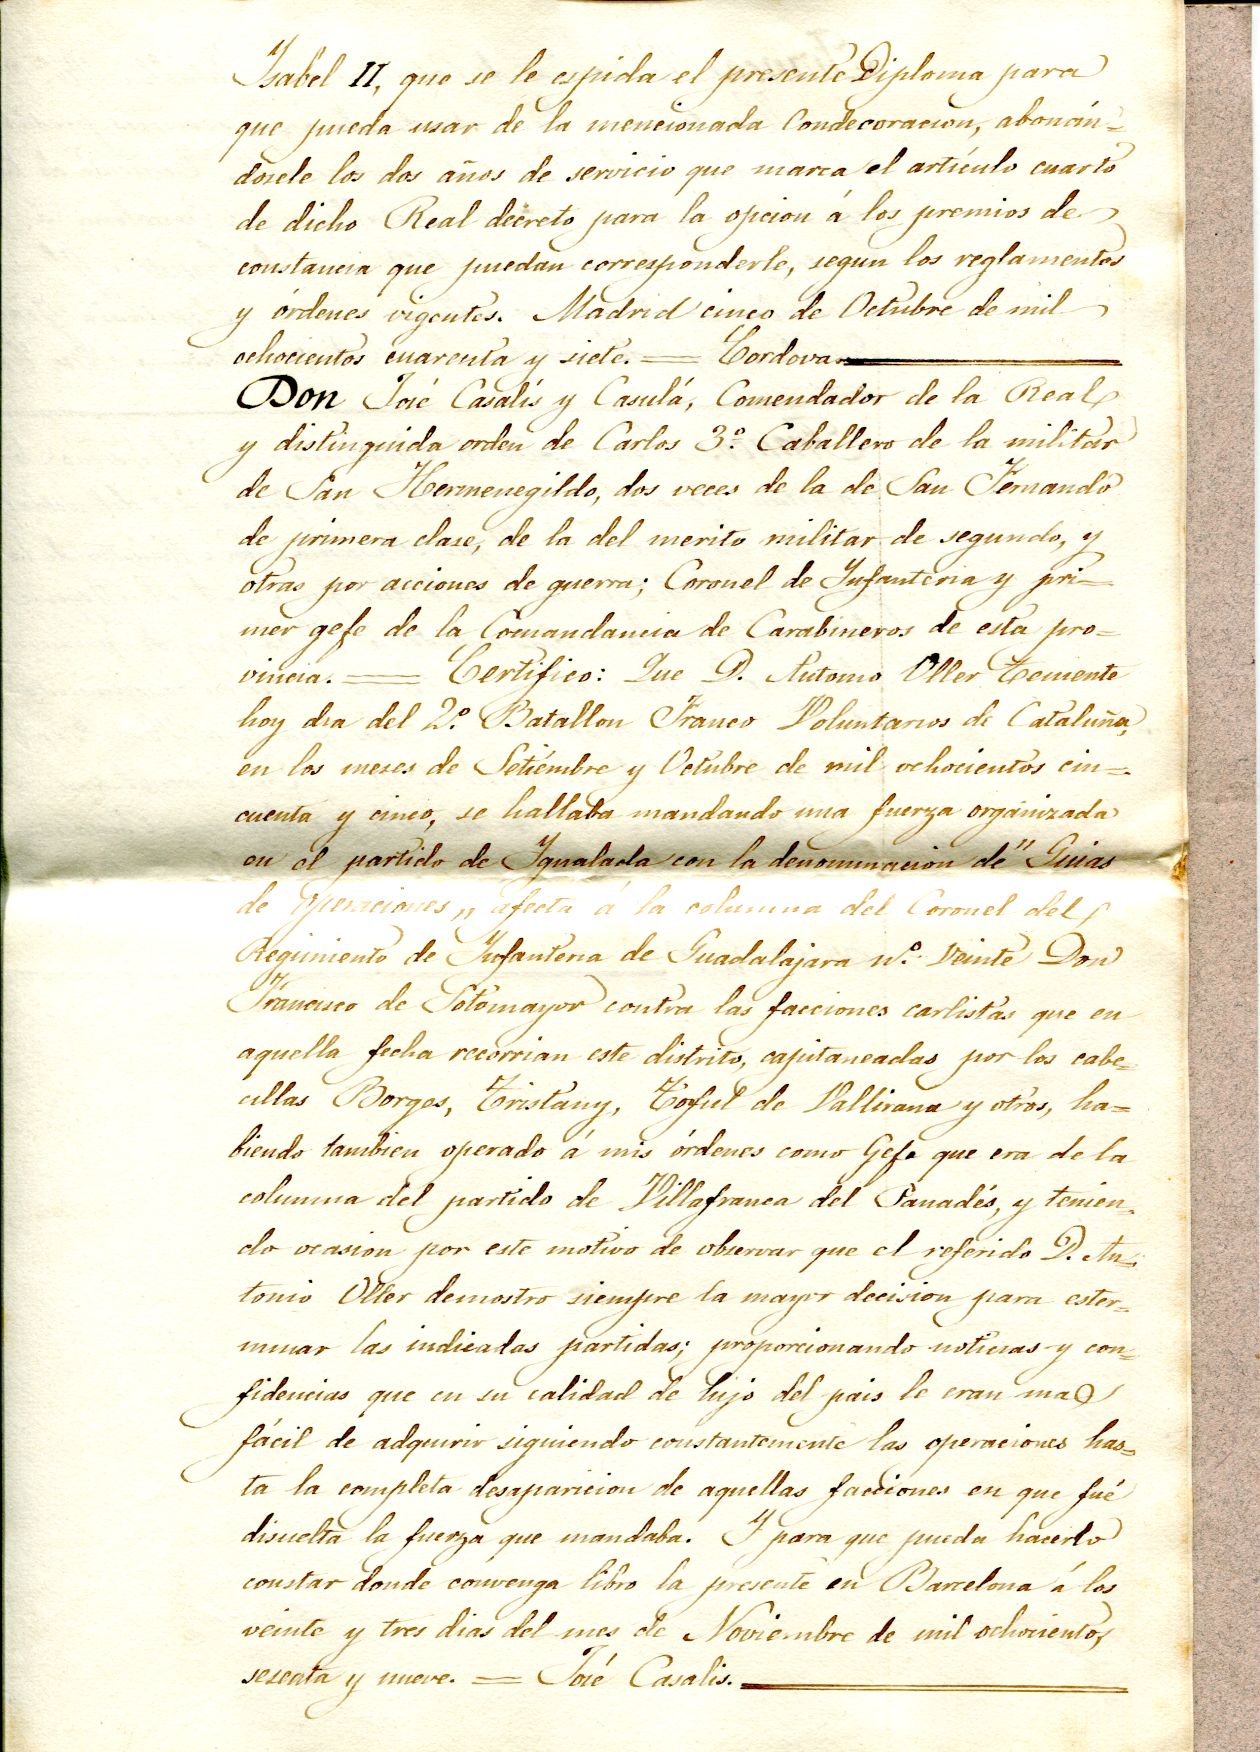 Isabel II, que se le espida el presente Diploma para
que pueda usar de la mencionada Condecoracion, abonán=
dosele los dos años de servicio que marca el artículo cuarto
de dicho Real decreto para la opcion á los premios de
constancia que puedan corresponderle, segun los reglamentos
y órdenes vigentes. Madrid cinco de Octubre de mil
ochocientos cuarenta y siete. = Cordova.
Don José Casalís y Casulá, Comendador de la Real
y distinguida orden de Carlos 3º. Caballero de la militar
de San Hermenegildo, dos veces de la de San Fernando
de primera clase, de la del merito militar de segundo, y
otras por acciones de guerra; Coronel de Infanteria y pri=
mer gefe de la Comandancia de Carabineros de esta pro=
vincia. = Certifico: Que D. Antonio Oller teniente
hoy dia del 2º. Batallon Franco Voluntarios de Cataluña,
en los meses de Setiembre y Octubre de mil ochocientos cin=
cuenta y cinco, se hallaba mandando una fuerza organizada
en el partido de Igualada con la denominacion de " Guias
de operaciones „ afecta á la columna del Coronel del
Regimiento de Infanteria de Guadalajara nº. Veinte Don
Francisco de Sotomayor contra las facciones carlistas que en
aquella fecha recorrian este distrito, capitaneadas por los cabe=
cillas Borges, Tristany, Toful de Vallirana y otros, ha=
biendo tambien operado á mis órdenes como Gefe que era de la
columna del partido de Villafranca del Panadés, y tenien=
do ocasion por este motivo de observar que el referido D. An=
tonio Oller demostro siempre la mayor decision para ester=
minar las indicadas partidas; proporcionando noticias y con=
fidencias que en su calidad de hijo del pais le eran mas
fácil de adquirir siguiendo constantemente las operaciones has=
ta la completa desaparicion de aquellas facciones en que fué
disuelta la fuerza que mandaba. Y para que pueda hacerlo
constar donde convenga libro la presente en Barcelona á los
veinte y tres dias del mes de Noviembre de mil ochocientos
sesenta y nueve. = José Casalis.